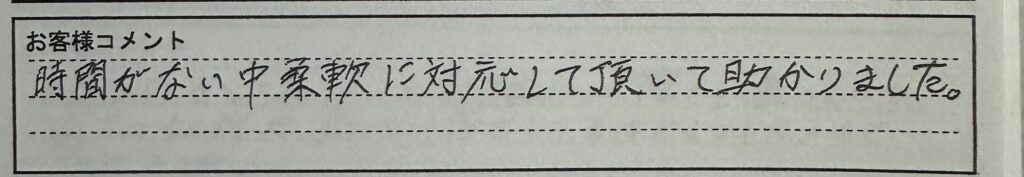 お客様コメント
時間がない中柔軟に対応して頂いて助かりました。